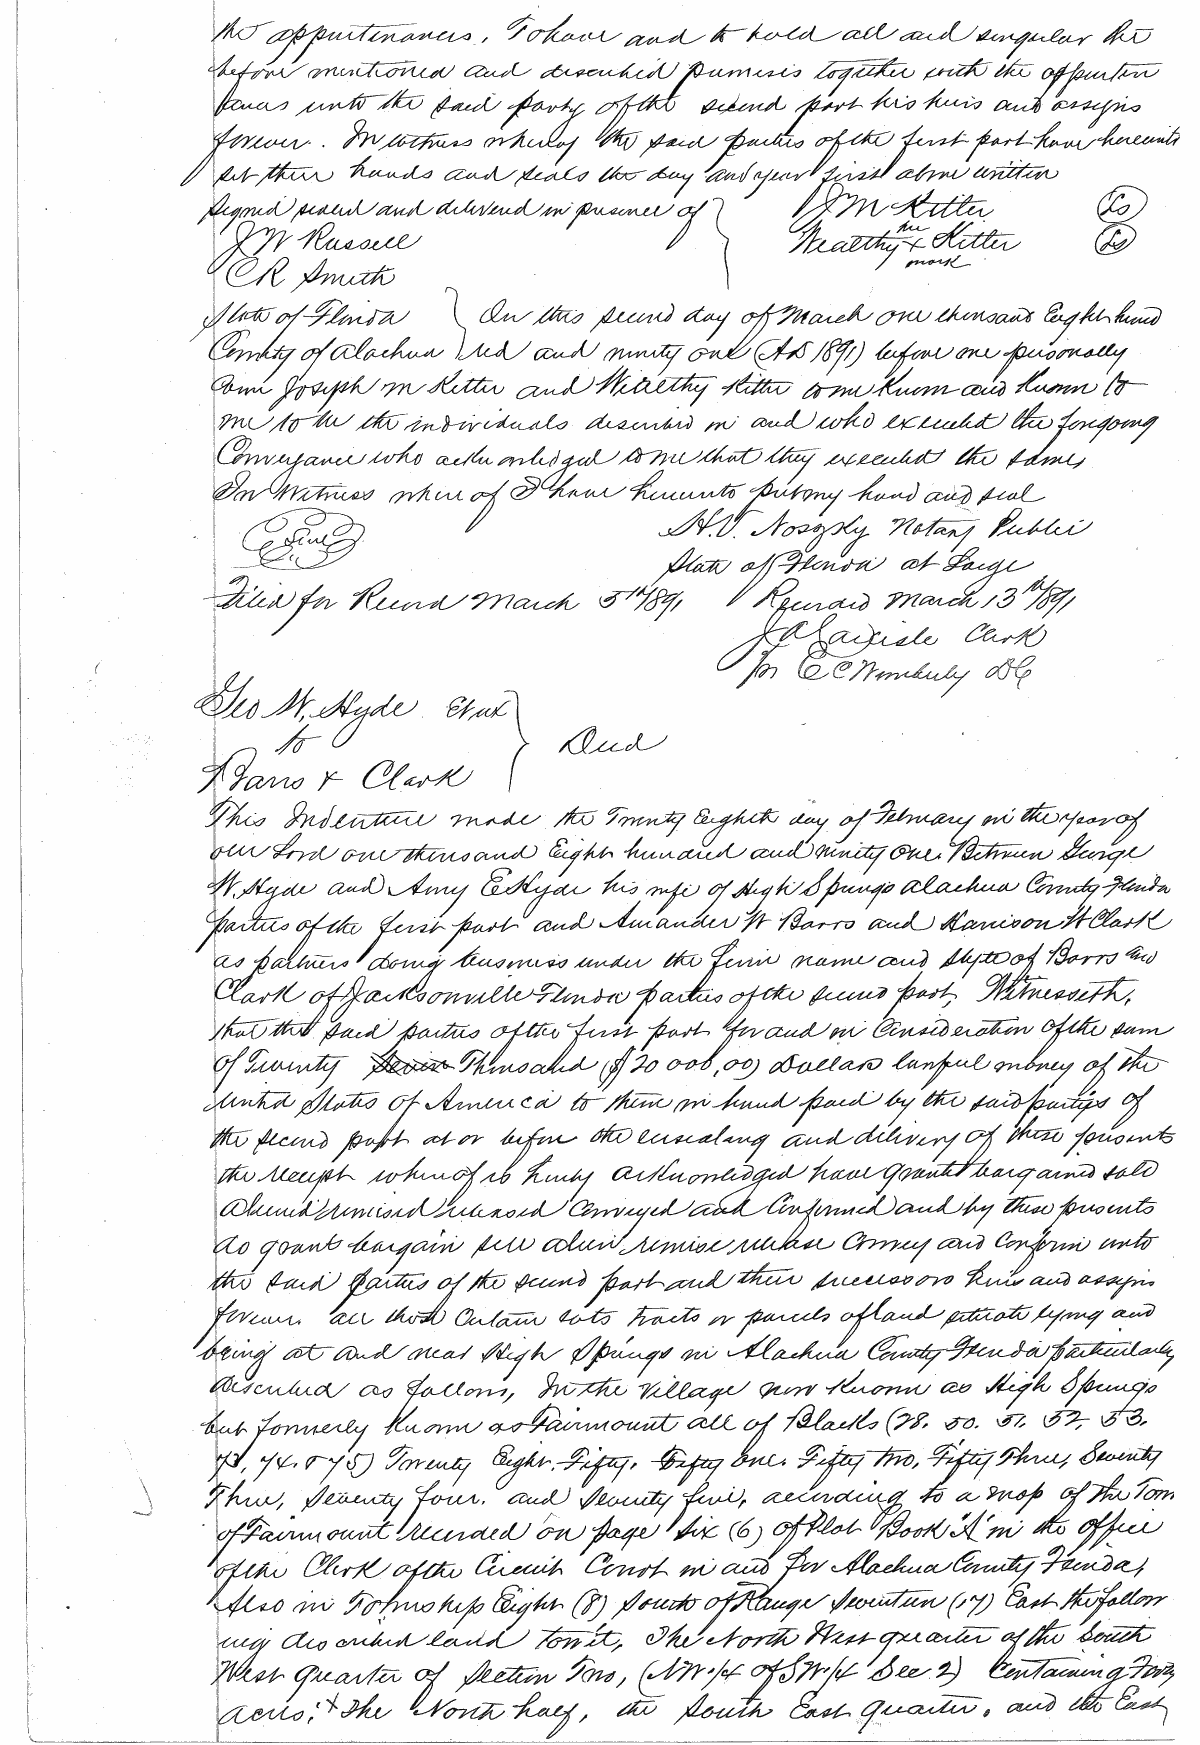 the appurtenances. To have and to hold all and singular the
before mentioned and described premises together with the appurten
ances unto the said party of the second part his heirs and assigns
forever. In witness whereof the said parties of the first part have hereunto
set their hands and seals the day and year first above written
Signed sealed and delivered in presence of
J M Kitter (Ls)
J W Russell
Wealthy her x mark Kitter (Ls)
C R Smith
State of Florida On this second day of March one thousand Eight hund
County of Alachua red and ninety one (AD 1891) before me personally
came Joseph M Kitter and Wealthy Kitter to me Known and Known to
me to be the individuals described in and who executed the foregoing
Conveyance who acknowledged to me that they executed the same,
In Witness where of I have hereunto put my hand and seal
Seal
H.V. Notary Public
State of Florida at Large
Filed for Record March 5th 1891 Recorded March 13th 1891
J A Carlisle Clerk
pr E C Wimberly DC
Geo W. Hyde Et ux
to
Deed
Barrs & Clark
This Indenture made the Twenty Eighth day of February in the year of
our Lord one thousand Eight hundred and ninety one. Between George
W. Hyde and Amy E Hyde his wife of High Springs Alachua County Florida
parties of the first part and Amander W Barrs and Harrison W Clark
as partners doing business under the firm name and style of Barrs and
Clark of Jacksonville Florida parties of the second part, Witnesseth,
that the said parties of the first part for and in Consideration of the sum
of Twenty Seven Thousand ($20 000,00) Dollars lawful money of the
United States of America to them in hand paid by the said parties of
the second part at or before the ensealing and delivery of these presents
the receipt where of is hereby acknowledged have granted bargained sold
aliened remised released conveyed and Confirmed and by these presents
do grant bargain sell alien, remise release Convey and Confirm unto
the said parties of the second part and their successors heirs and assigns
forever. all those Certain lots tracts or parcels of land situate lying and
being at and near High Springs in Alachua County Florida particularly
described as follows, In the village now Known as High Springs
but formerly Known as Fairmount all of Blocks (28. 50. 51. 52. 53.
73, 74. & 75) Twenty Eight, Fifty, Fifty one. Fifty two, Fifty Three, Seventy
Three, Seventy four. and Seventy five, according to a map of the Town
of Fairmount recorded on page six (6) of Plat Book "A" in the office
of the Clerk of the Circuit Court in and for Alachua County Florida,
Also in Township Eight (8) South of Range Seventeen (17) East the follow
ing described land towit, The North West quarter of the South
West Quarter of Section Two, (NW 1/4 of SW 1/4 Sec. 2) Containing Forty
acres; + The North half, the South East Quarter, and the East